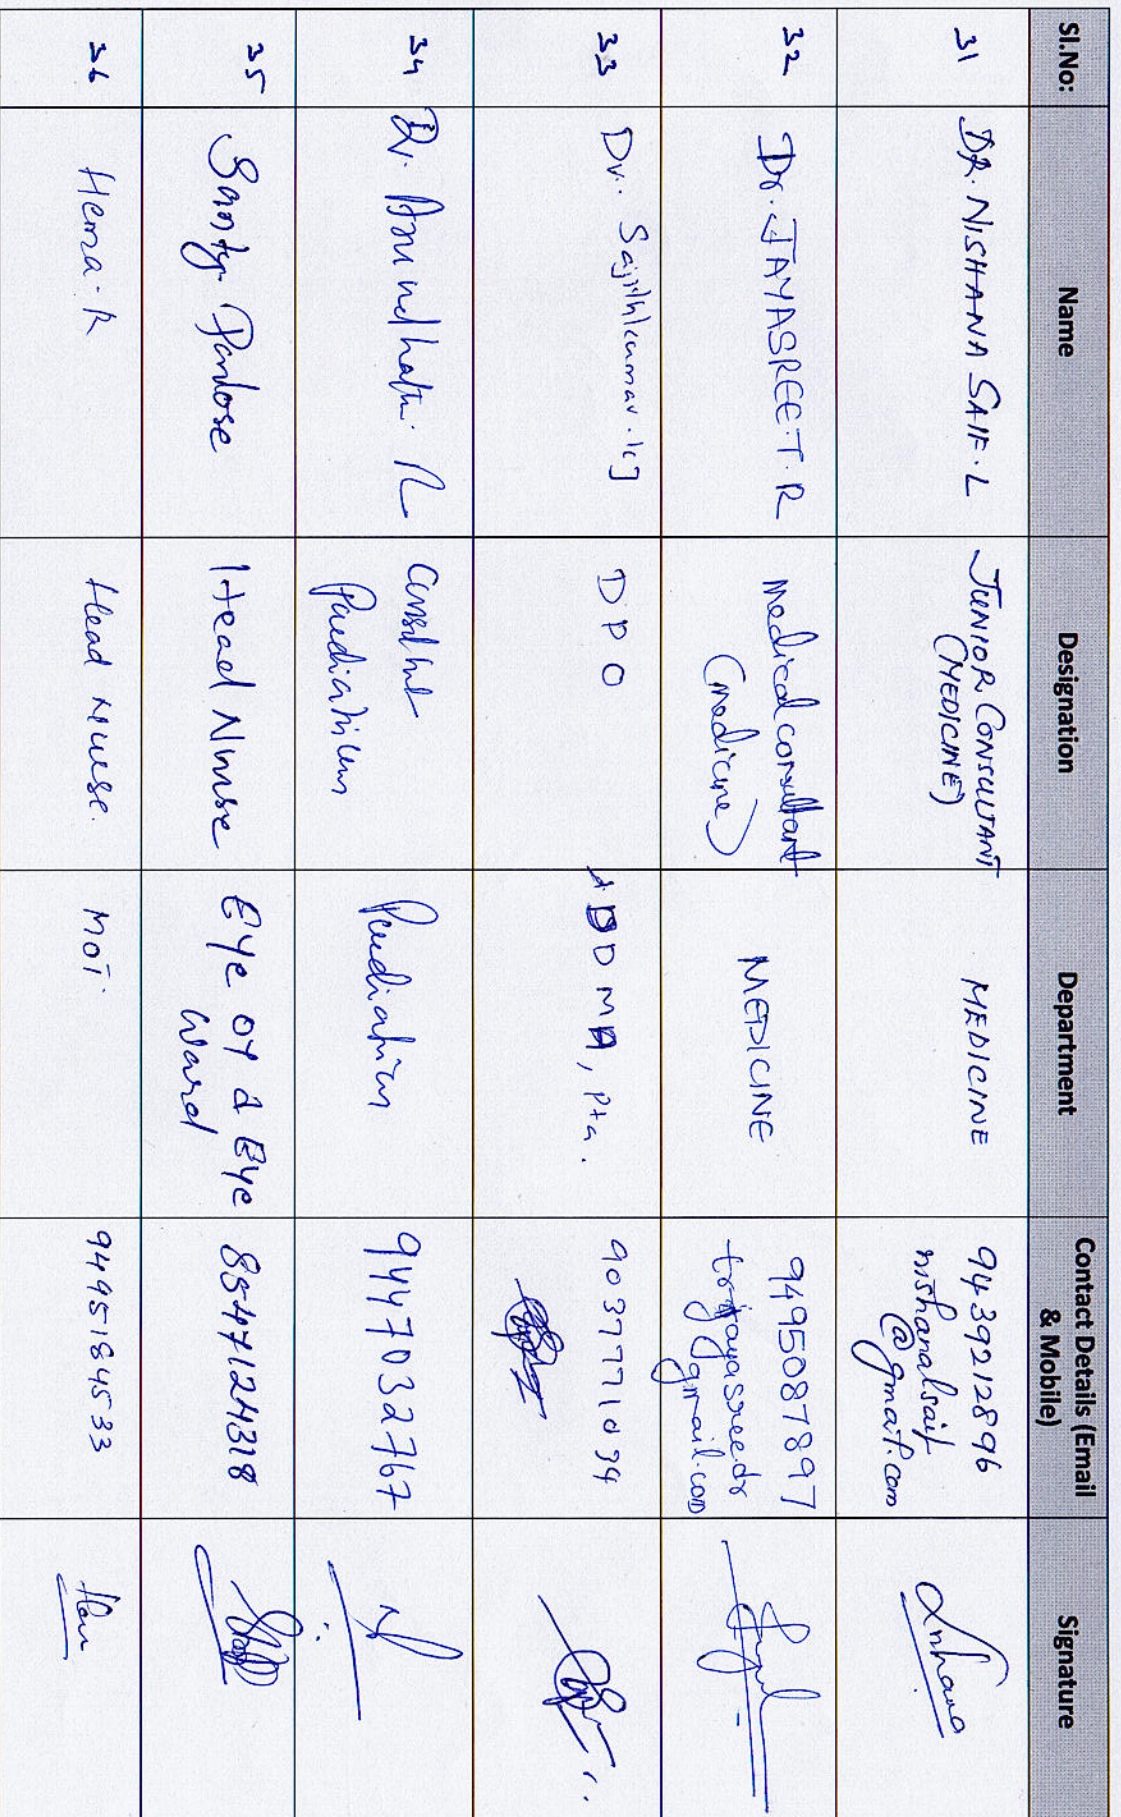 Sl.No: Name Designation Department Contact Details (Email & Mobile) Signature
31 DR. NISHANA SAIF. L JUNIOR CONSULTANT (MEDICINE) MEDICINE 9439212896 nishanalsaif @gmail.com
32 Dr. JAYASREE.T.R Medical consultant (medicine) MEDICINE 9495087897 trjayasreedr gmail.com
33 Dr. Sajithkumar. KJ DPO DDMA, Pta. 9037771034
34 Dr. Arundhathi. R Consultant Paediatrician Paediatrics 9447032767
35 Santy Paulose Head Nurse Eye OT & Eye Ward 8547124318
36 Hema. R Head Nurse. MOT. 9495184533